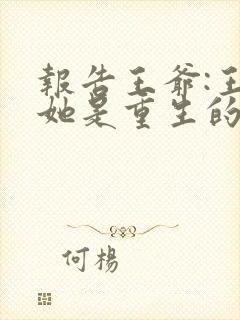 報告王爺:王
她是重生的
何楊